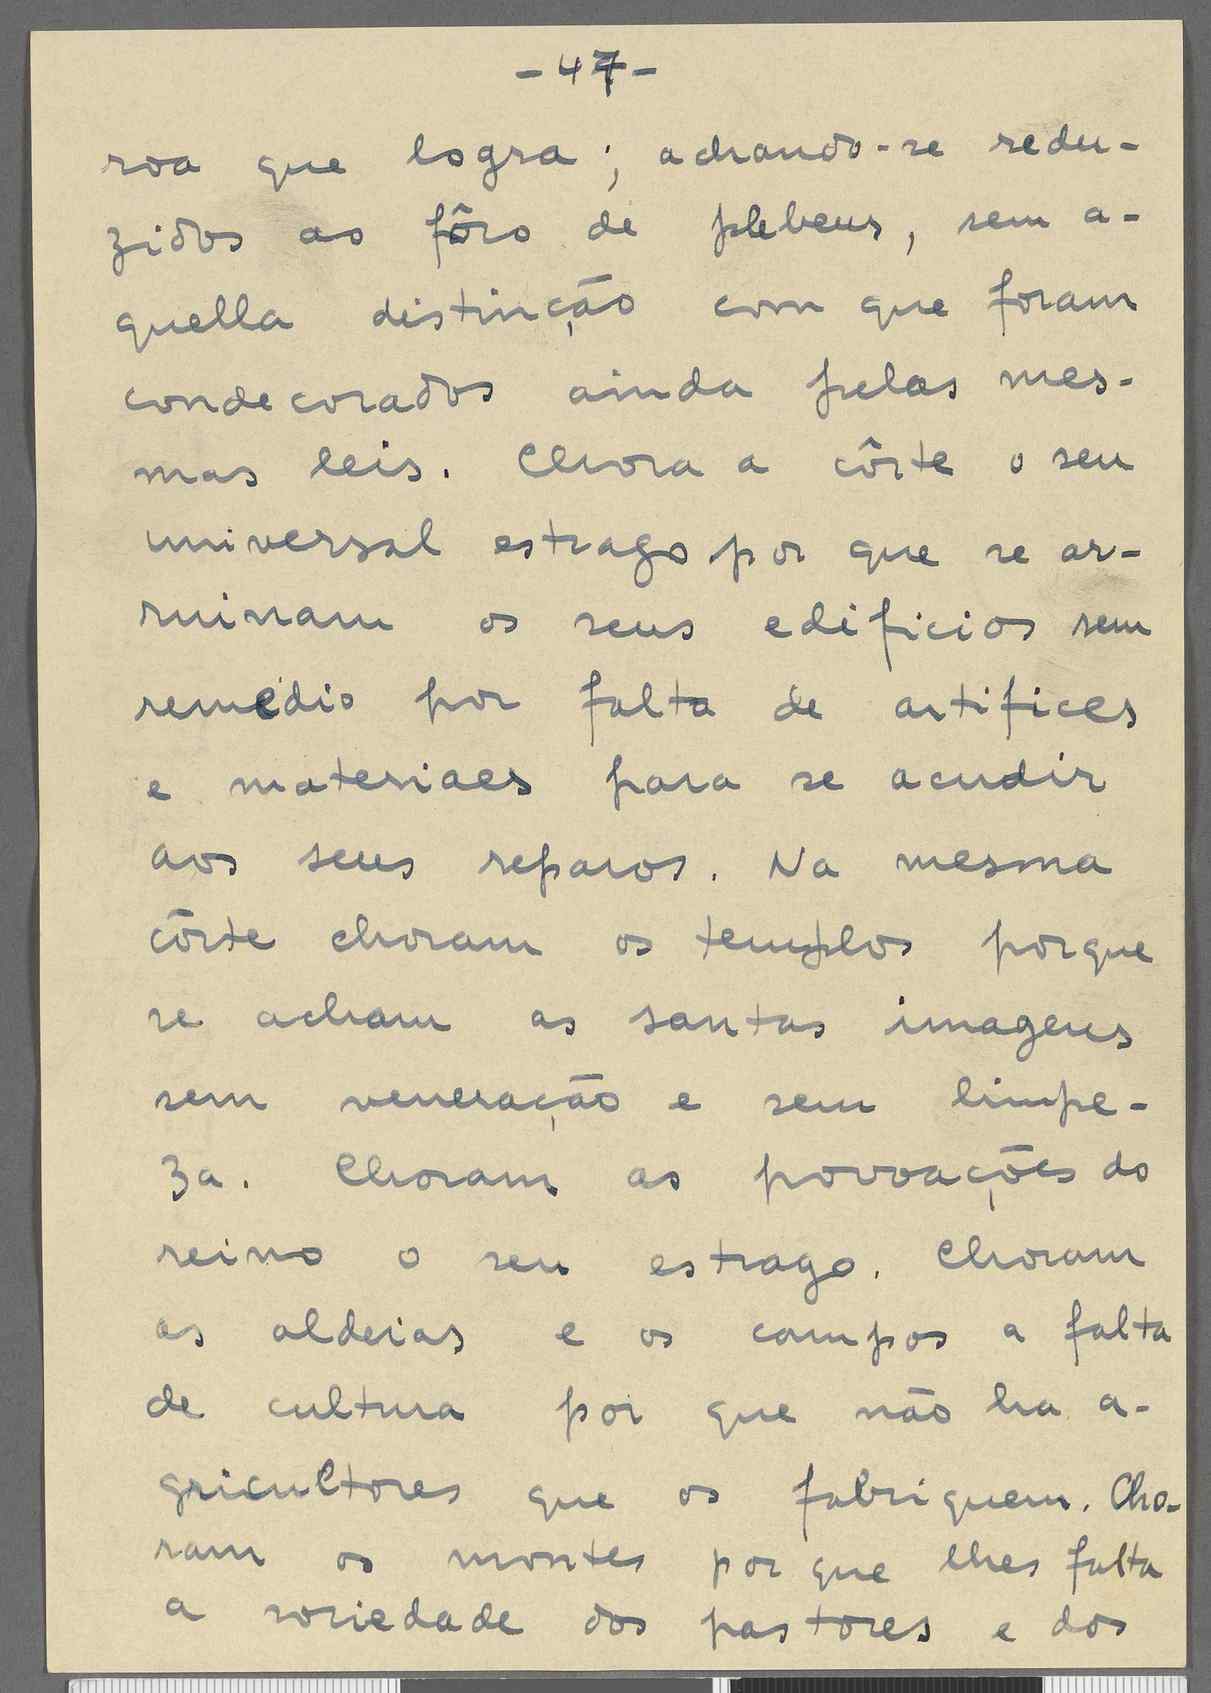 -47-
roa que logra; achando-se redu-
zidos ao fôro de plebeus, sem a-
quella distincção com que foram
condecorados ainda pelas mes-
mas leis. Chora a côrte o seu
universal estrago por que se ar-
ruinam os seus edificios sem
remedio por falta de artifices
e materiaes para se acudir
aos seus reparos. Na mesma
côrte choram os templos porque
se acham as santas imagens
sem veneração e sem limpe-
za. Choram as povoações do
reino o seu estrago. Choram
as aldeias e os campos a falta
de cultura por que não ha a-
gricultores que os fabriquem. Cho-
ram os montes por que lhes falta
a sociedade dos pastores e dos